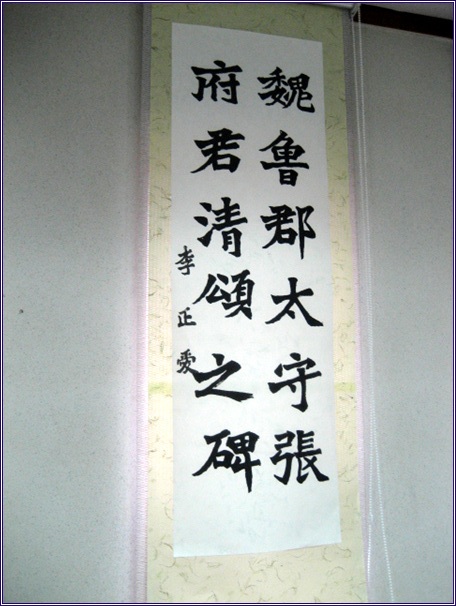 魏魯郡太守張
府君清頌之碑
李正愛